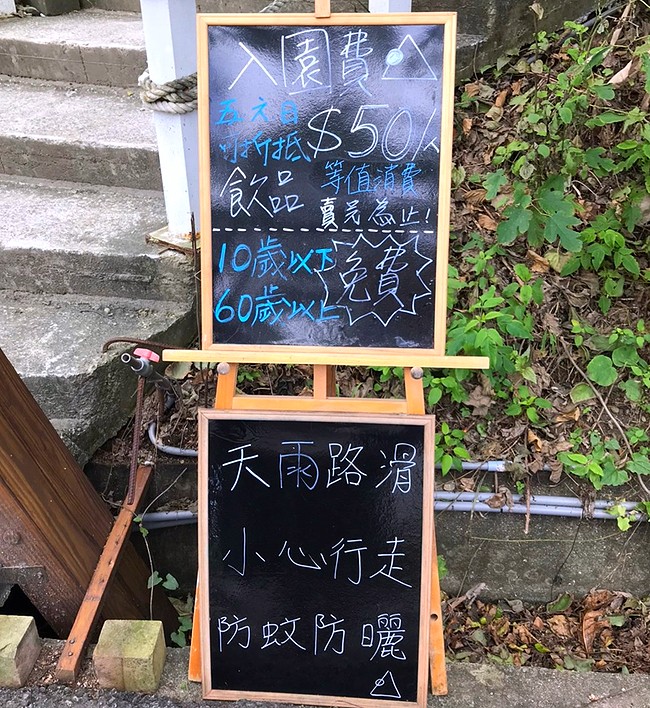 入園費
五六日
可折抵 $50/人
飲品 等值消費
賣完為止!
10歲以下
60歲以上
免費
天雨路滑
小心行走
防蚊防曬